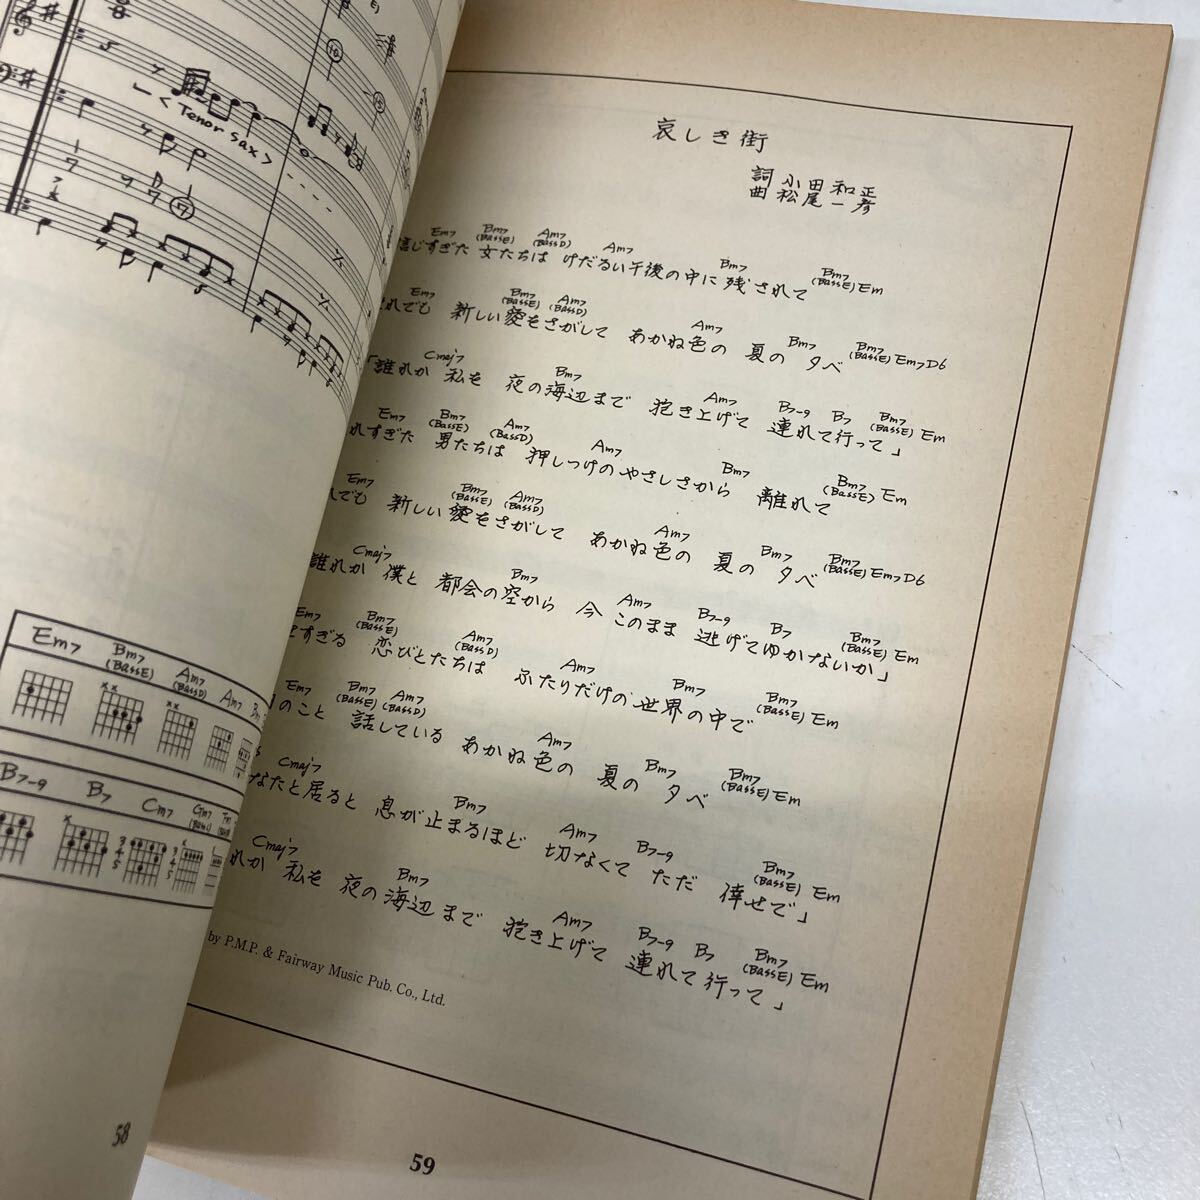 <Tenor Sax>
Em7 Bm7 (BassE) Am7 (BassD) Am7
B7-9 B7 Cm7 Gm7
58
哀しき街
詞 小田和正
曲 松尾一彦
Em7 Bm7 (BassE) Am7 (BassD) Am7 Bm7 Bm7 (BassE) Em
信じすぎた 女たちは けだるい午後の中に 残されて
Em7 Bm7 (BassE) Am7 (BassD) Am7 Bm7 Bm7 (BassE) Em7 D6
れでも 新しい愛をさがして あかね色の 夏の 夕べ
Cmaj7 Bm7 Am7 B7-9 B7 Bm7 (BassE) Em
「誰れか 私を 夜の海辺まで 抱き上げて 連れて行って」
Em7 Bm7 (BassE) Am7 (BassD) Am7 Bm7 Bm7 (BassE) Em
れすぎた 男たちは 押しつけのやさしさから 離れて
Em7 Bm7 (BassE) Am7 (BassD) Am7 Bm7 Bm7 (BassE) Em7 D6
れでも 新しい愛をさがして あかね色の 夏の 夕べ
Cmaj7 Bm7 Am7 B7-9 B7 Bm7 (BassE) Em
誰れか 僕と 都会の空から 今 このまま 逃げてゆかないか」
Em7 Bm7 (BassE) Am7 (BassD) Am7 Bm7 Bm7 (BassE) Em
すぎる 恋びとたちは ふたりだけの 世界の中で
Em7 Bm7 (BassE) Am7 (BassD) Am7 Bm7 Bm7 (BassE) Em
のこと 話している あかね色の 夏の 夕べ
Cmaj7 Bm7 Am7 B7-9 Bm7 (BassE) Em
なたと居ると 息が止まるほど 切なくて ただ 倖せで」
Cmaj7 Bm7 Am7 B7-9 B7 Bm7 (BassE) Em
れか 私を 夜の海辺まで 抱き上げて 連れて行って」
by P.M.P. & Fairway Music Pub. Co., Ltd.
59